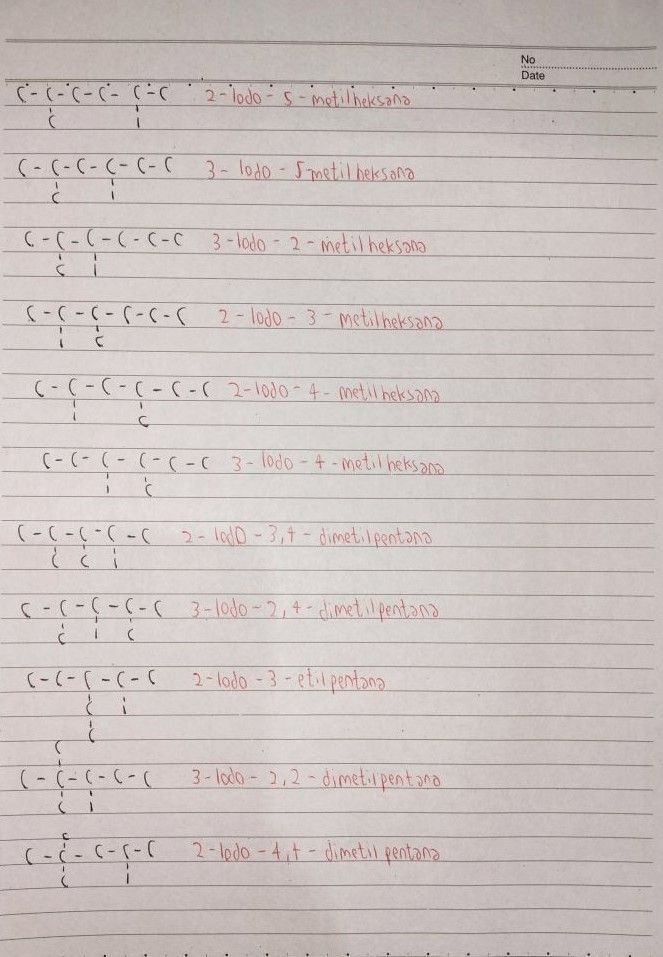 No
Date
C - C - C - C - C - C 2 - Iodo - 5 - metilheksana
C I
C - C - C - C - C - C 3 - Iodo - 5 metilheksana
C I
C - C - C - C - C - C 3 - Iodo - 2 - metilheksana
C I
C - C - C - C - C - C 2 - Iodo - 3 - metilheksana
I C
C - C - C - C - C - C 2 - Iodo - 4 - metilheksana
I C
C - C - C - C - C - C 3 - Iodo - 4 - metilheksana
I C
C - C - C - C - C 2 - Iodo - 3,4 - dimetilpentana
C C I
C - C - C - C - C 3 - Iodo - 2,4 - dimetilpentana
C I C
C - C - C - C - C 2 - Iodo - 3 - etilpentana
C I
C
C
C - C - C - C - C 3 - Iodo - 2,2 - dimetilpentana
C I
C
C - C - C - C - C 2 - Iodo - 4,4 - dimetil pentana
C I